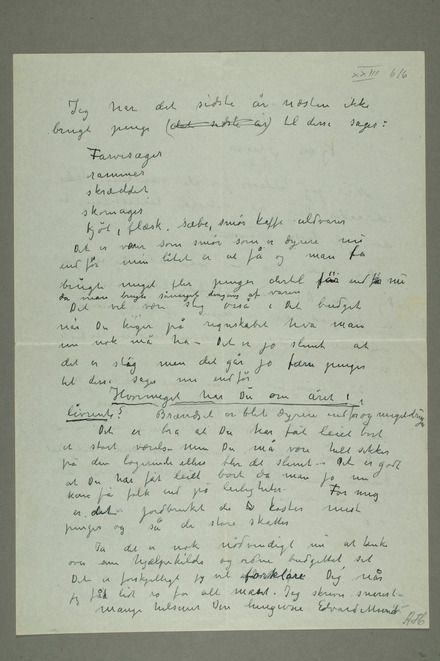 XXIII 6/6
Jeg har det sidste år næsten ikke
brugt penge (det sidste år) til disse sager:
Farvesager
rammer
skrædder
skomager
kjöt, flæsk, sæbe, smör kaffe uldvarer
Det er varer som smör som er dyrere nu
end för min litet er at få og man
brugte meget fler penger dertil för end nu
da man brugte
Det vil vær slig også i Det budget
når Du kiger på regnskabet hva man
nu nok må ha – Det er jo slemt at
det er slig men det går jo færre penger
til disse sager nu end för
Hvormeget har Du om året i
livrente? Brændsel er blit dyrere end för og meget
Det er bra at Du har fåt leiet bort
et stort værelse men Du må være helt sikker
på den logerende ellers blir det slemt – Det er godt
at Du har fåt leiet bort da man jo nu
kan få folk ind på leiligheten. For mig
er det jordbruket de koster mest
penger og så de store skatter
Ja det er nok nödvendigt nu at tænke
over em hjælpekilde og ordne budgettet sit
Det er forskjelligt jeg vil forklare Dig når
jeg får lidt ro for alt mulig. Jeg skriver snarest –
mange hilsener Din hengivne Edvard Munch